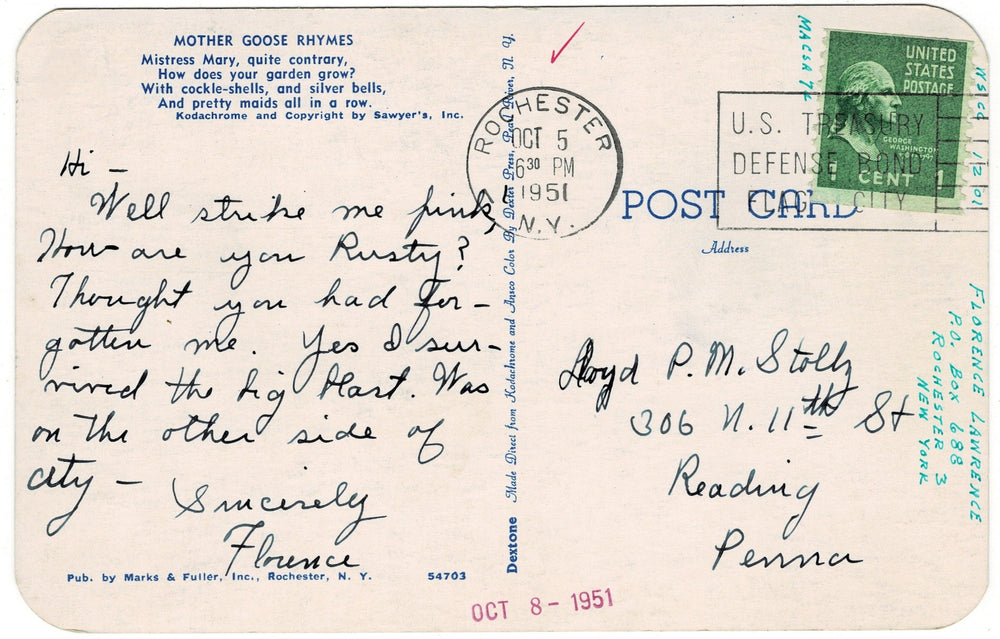 MOTHER GOOSE RHYMES
Mistress Mary, quite contrary,
How does your garden grow?
With cockle-shells, and silver bells,
And pretty maids all in a row.
Kodachrome and Copyright by Sawyer's, Inc.
Hi —
Well strike me pink,
How are you Rusty?
Thought you had for-
gotten me. Yes I sur-
vived the big blast. Was
on the other side of
city —
Sincerely
Florence
Pub. by Marks & Fuller, Inc., Rochester, N. Y.
54703
Dextone Made Direct from Kodachrome and Ansco Color By Dexter Press, Pearl River, N. Y.
ROCHESTER
OCT 5
6 30 PM
1951
N.Y.
U.S. TREASURY
DEFENSE BOND
FLAG CITY
UNITED
STATES
POSTAGE
GEORGE
WASHINGTON
1 CENT 1
POST CARD
Address
Lloyd P. M. Stolly
306 N. 11th St
Reading
Penna
FLORENCE LAWRENCE
P.O. BOX 688
ROCHESTER 3
NEW YORK
OCT 8 - 1951